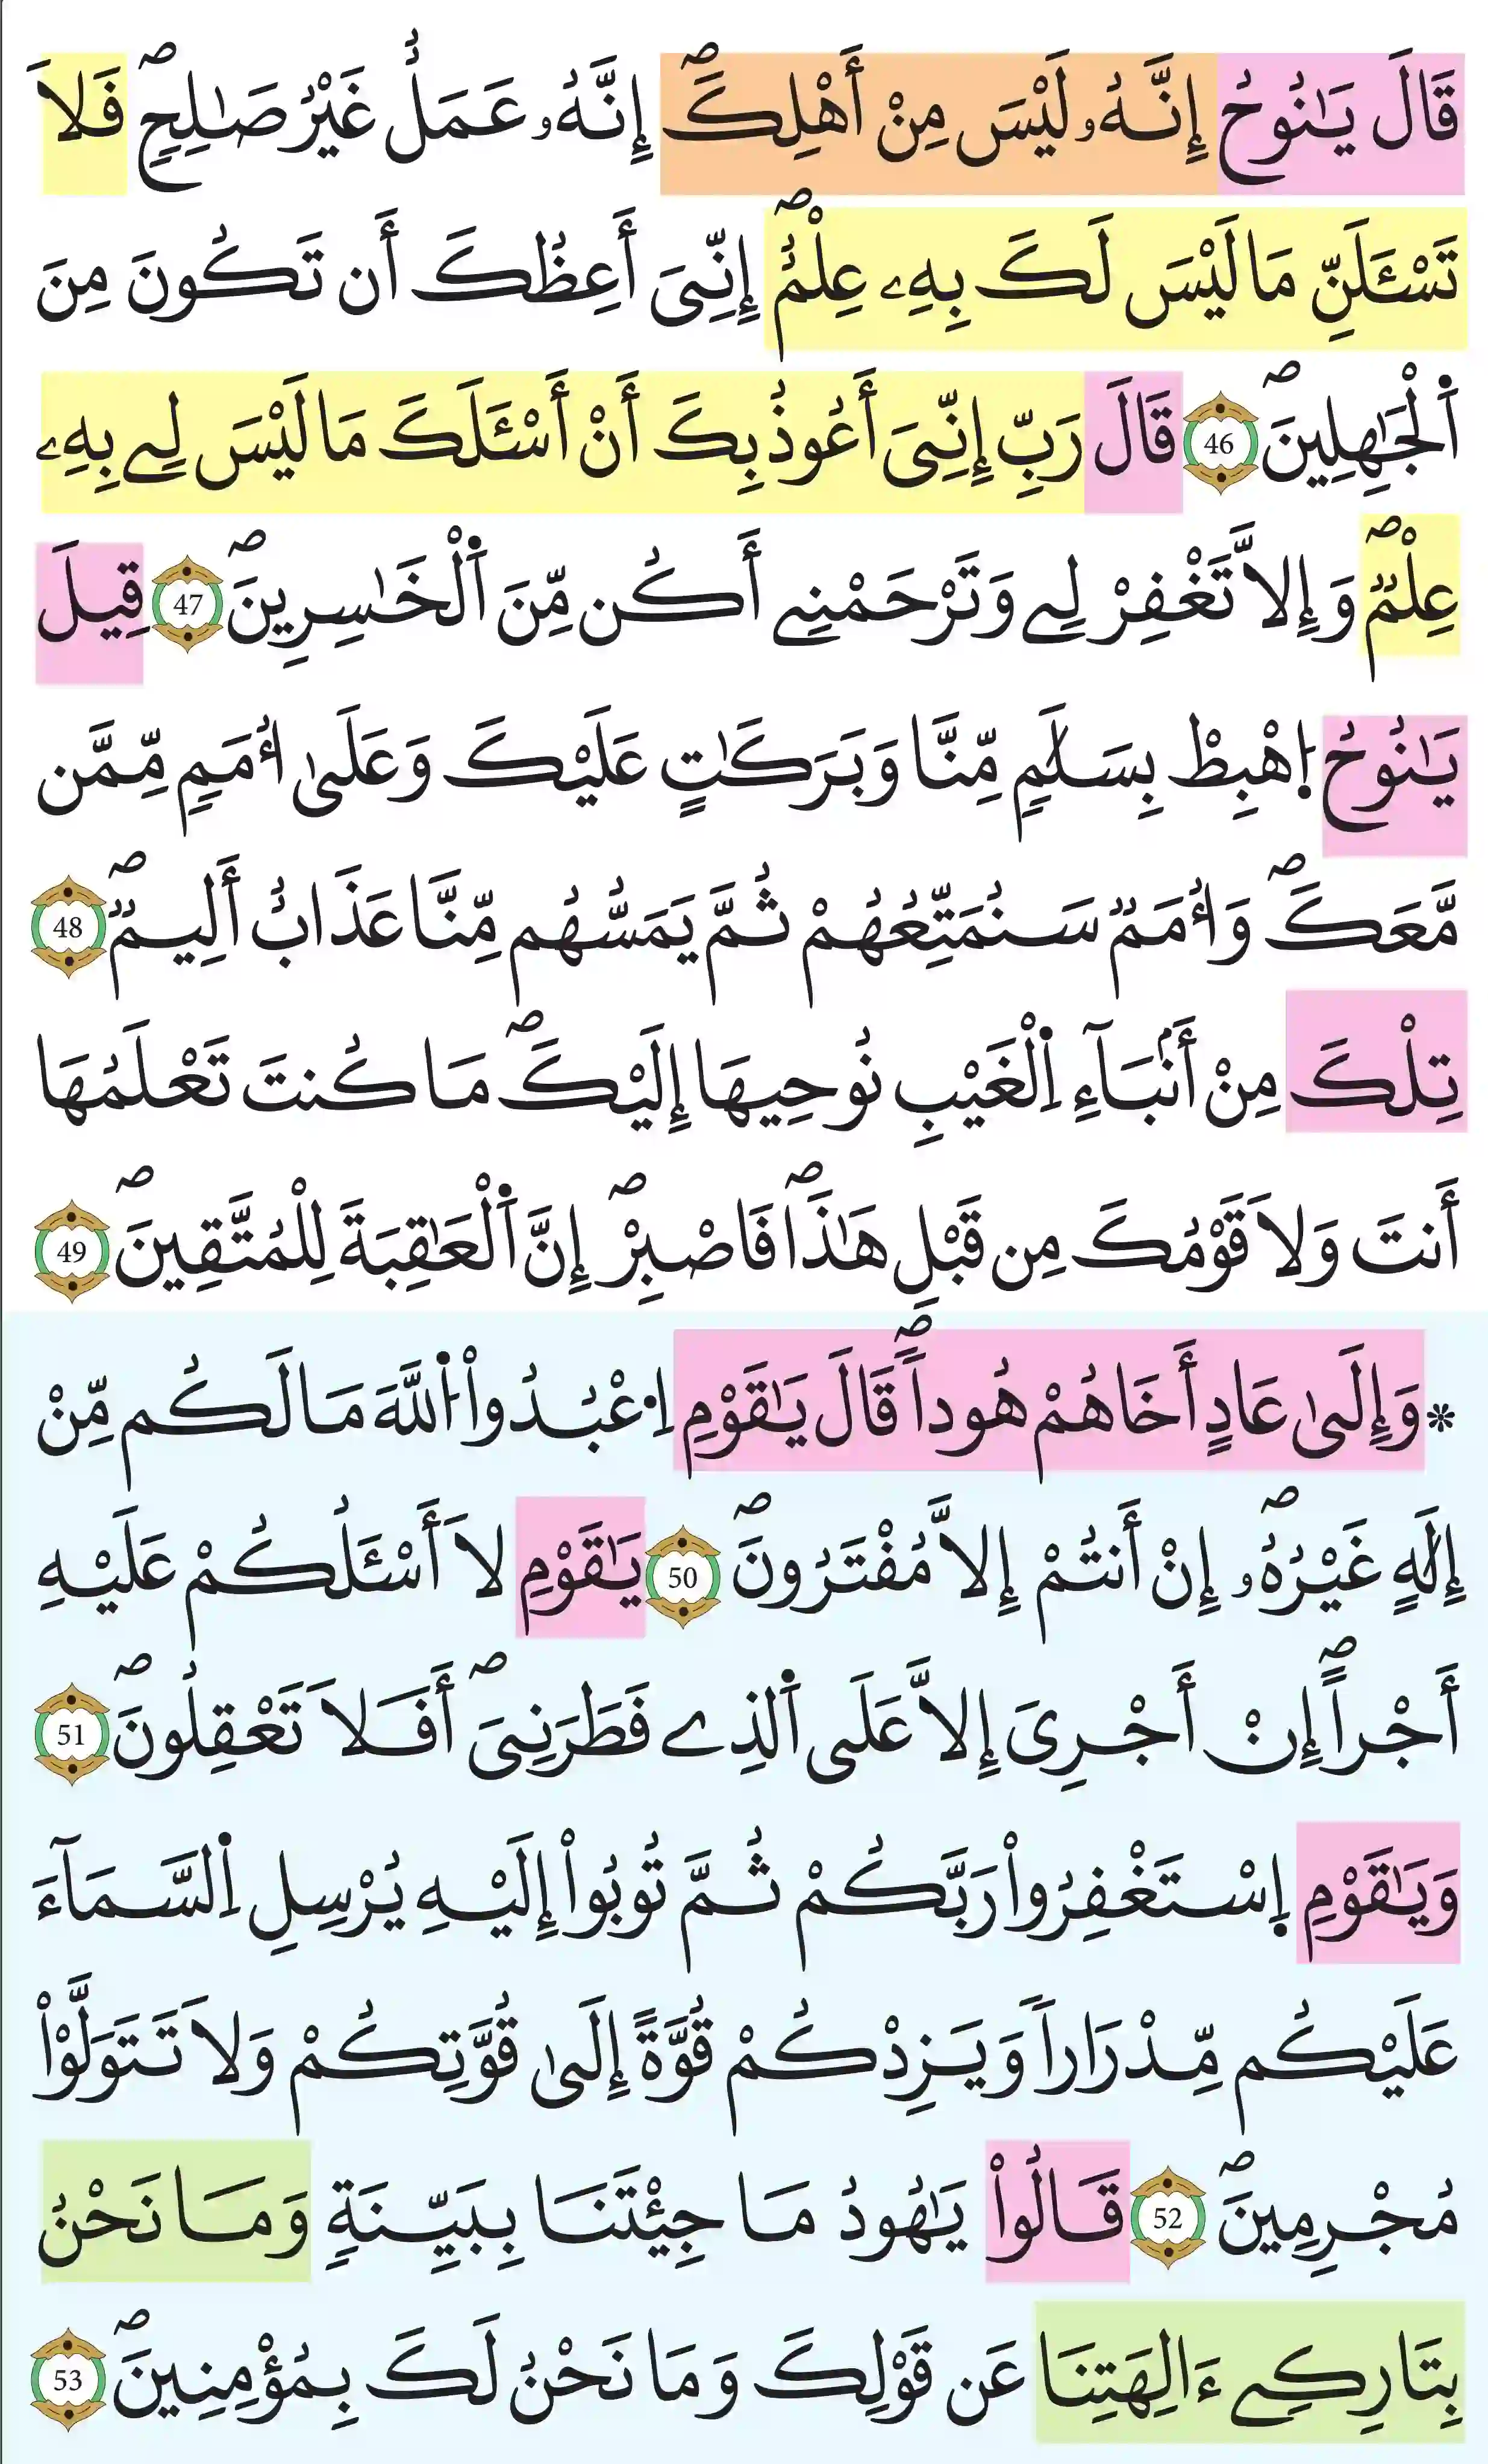 قَالَ يَٰنُوحُ إِنَّهُۥ لَيْسَ مِنْ أَهْلِكَۖ إِنَّهُۥ عَمَلٌ غَيْرُ صَٰلِحٖۖ فَلَا
تَسْـَٔلَنِّ مَا لَيْسَ لَكَ بِهِۦ عِلْمٌۖ إِنِّيَ أَعِظُكَ أَن تَكُونَ مِنَ
اَ۬لْجَٰهِلِينَۖ 46 قَالَ رَبِّ إِنِّيَ أَعُوذُ بِكَ أَنْ أَسْـَٔلَكَ مَا لَيْسَ لِے بِهِۦ
عِلْمٞۖ وَإِلَّا تَغْفِرْ لِے وَتَرْحَمْنِے أَكُن مِّنَ اَ۬لْخَٰسِرِينَۖ 47 قِيلَ
يَٰنُوحُ اُ۪هْبِطْ بِسَلَٰمٖ مِّنَّا وَبَرَكَٰتٍ عَلَيْكَ وَعَلَيٰٓ أُمَمٖ مِّمَّن
مَّعَكَۖ وَأُمَمٞ سَنُمَتِّعُهُمْ ثُمَّ يَمَسُّهُم مِّنَّا عَذَابٌ أَلِيمٞۖ 48
تِلْكَ مِنْ أَنۢبَآءِ اِ۬لْغَيْبِ نُوحِيهَا إِلَيْكَۖ مَا كُنتَ تَعْلَمُهَا
أَنتَ وَلَا قَوْمُكَ مِن قَبْلِ هَٰذَاۖ فَاصْبِرْۖ إِنَّ اَ۬لْعَٰقِبَةَ لِلْمُتَّقِينَۖ 49
* وَإِلَىٰ عَادٍ أَخَاهُمْ هُوداٗۖ قَالَ يَٰقَوْمِ اِ۟عْبُدُواْ اُ۬للَّهَ مَا لَكُم مِّنْ
إِلَٰهٍ غَيْرُهُۥۖ إِنْ أَنتُمْ إِلَّا مُفْتَرُونَۖ 50 يَٰقَوْمِ لَا أَسْـَٔلُكُمْ عَلَيْهِ
أَجْراًۖ إِنْ أَجْرِيَ إِلَّا عَلَى اَ۬لذِے فَطَرَنِيَۖ أَفَلَا تَعْقِلُونَۖ 51
وَيَٰقَوْمِ اِ۪سْتَغْفِرُواْ رَبَّكُمْ ثُمَّ تُوبُواْ إِلَيْهِ يُرْسِلِ اِ۬لسَّمَآءَ
عَلَيْكُم مِّدْرَاراٗ وَيَزِدْكُمْ قُوَّةً إِلَىٰ قُوَّتِكُمْ وَلَا تَتَوَلَّوْاْ
مُجْرِمِينَۖ 52 قَالُواْ يَٰهُودُ مَا جِئْتَنَا بِبَيِّنَةٖ وَمَا نَحْنُ
بِتَارِكِے ءَالِهَتِنَا عَن قَوْلِكَ وَمَا نَحْنُ لَكَ بِمُؤْمِنِينَۖ 53